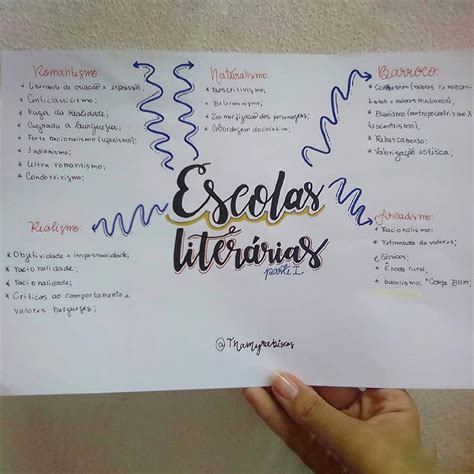 Romantismo:
* Liberdade de criação e expressão;
* Anticlassicismo;
* Fuga da realidade;
* a burguesia;
* Forte nacionalismo (ufanismo);
* Indianismo;
* Ultra romantismo;
* Condoreirismo;
Naturalismo:
* Descritivismo;
* Determinismo;
* Zoomorfização dos personagens;
* Abordagem do coletivo;
Barroco:
* (valores renascen-
tistas + valores medievais);
* Dualismo (antropocentrismo X
Teocentrismo);
* Rebuscamento;
* Valorização estética;
Escolas
literárias
parte I
Realismo:
* Objetividade e impessoalidade;
* racionalidade;
* racionalidade;
* Críticas ao comportamento e
valores burgueses;
Arcadismo:
* Racionalismo;
* retomada de valores
clássicos;
* Êxodo rural;
* bucolismo; "Carpe Diem;
@Thamyrabiscos